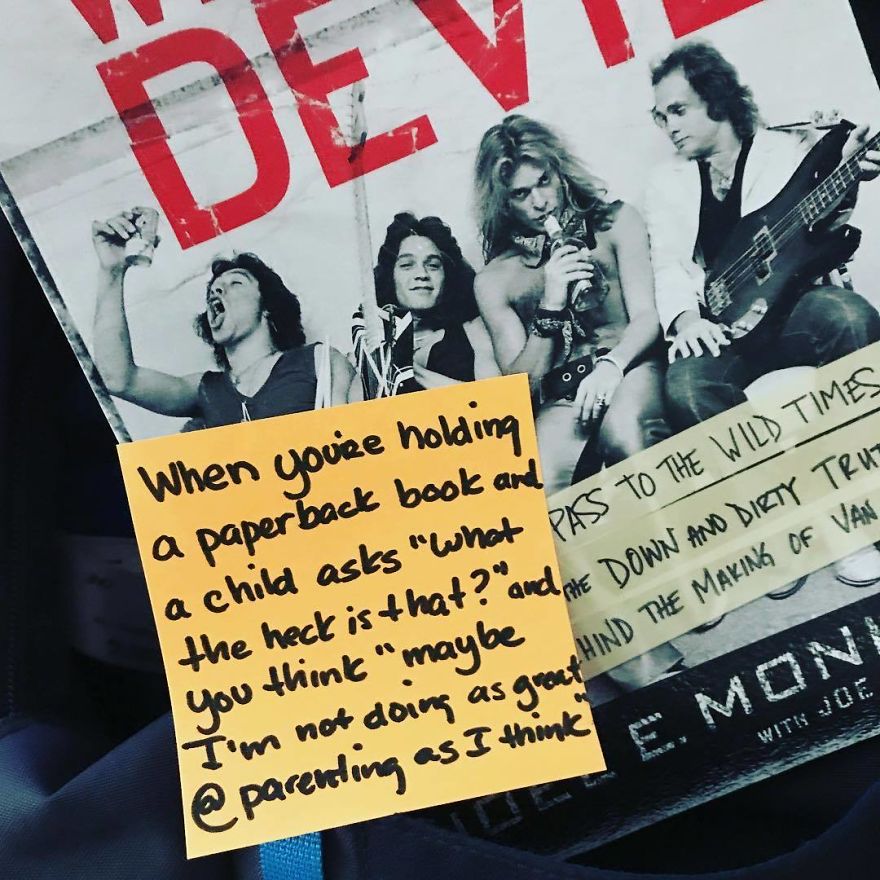 DEVI
When you're holding
a paperback book and
a child asks "what
the heck is that?" and
you think "maybe
I'm not doing as great
@ parenting as I think"
PASS TO THE WILD TIMES
THE DOWN AND DIRTY TRUT
HIND THE MAKING OF VAN
E. MON
WITH JOE